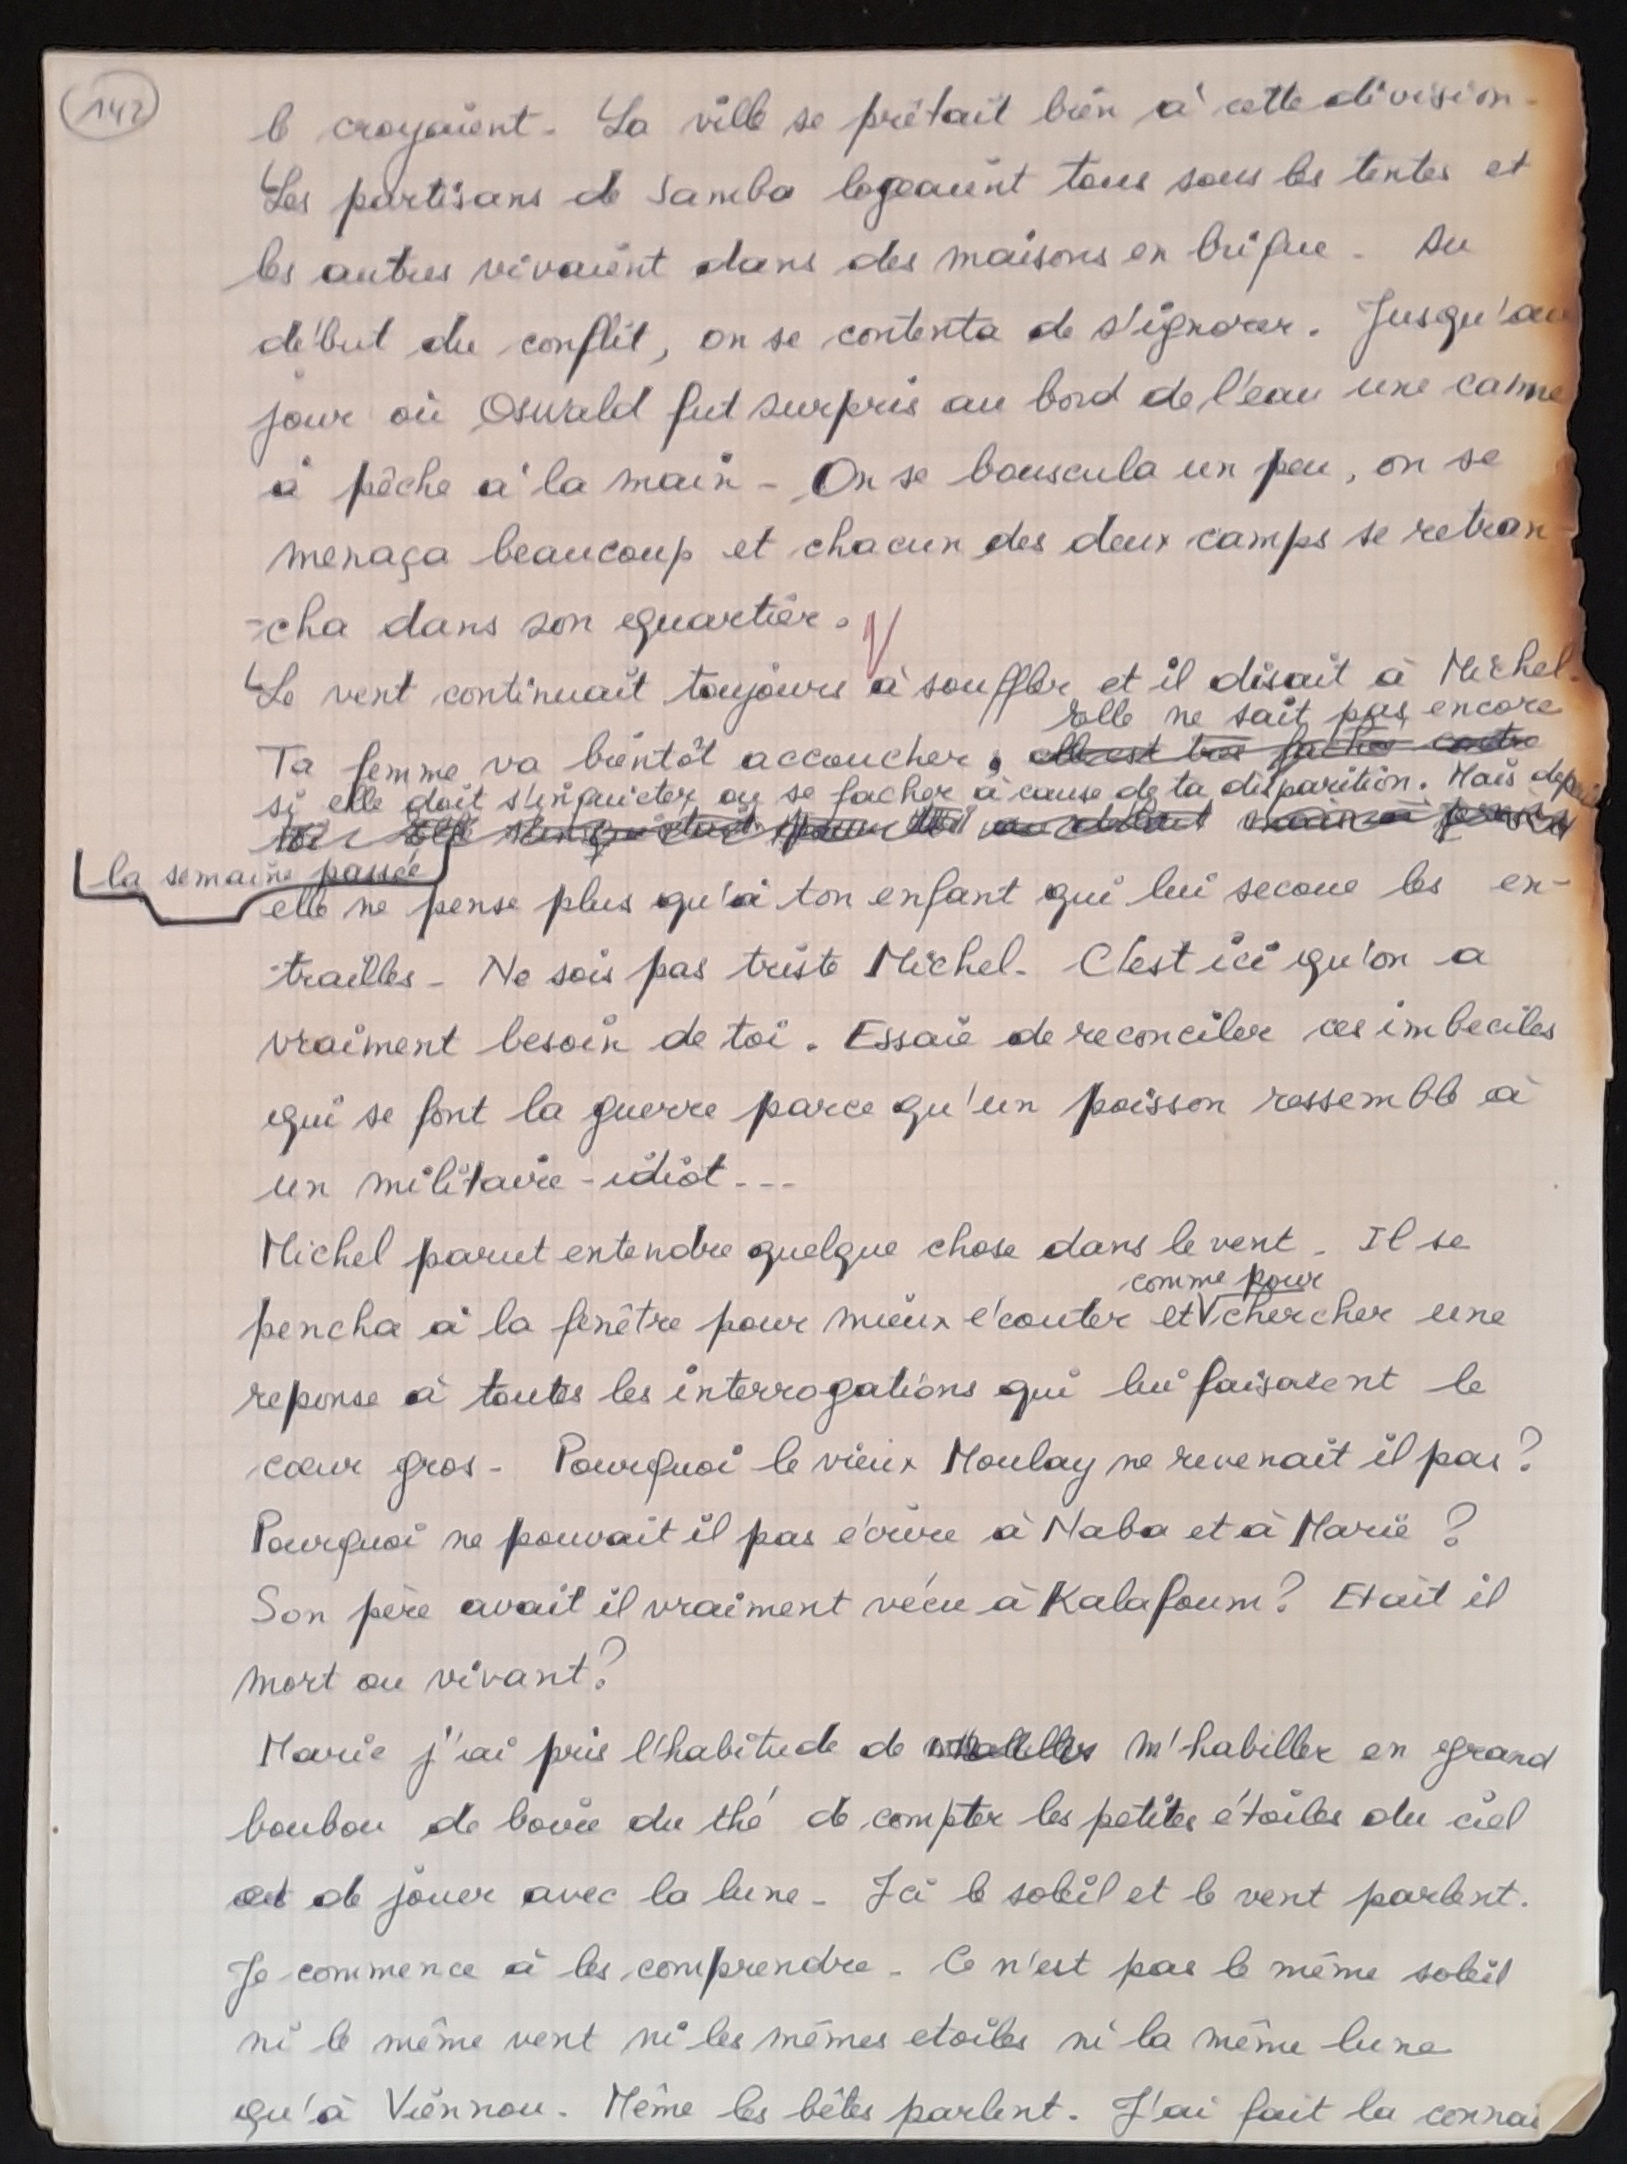 142
le croyaient - La ville se prêtait bien à cette division -
Les partisans de Samba logeaient tous sous les tentes et
les autres vivaient dans des maisons en brique - Au
début du conflit, on se contenta de s'ignorer. Jusqu'au
jour où Oswald fut surpris au bord de l'eau une canne
à pêche à la main - On se bouscula un peu, on se
menaça beaucoup et chacun des deux camps se retran-
-cha dans son quartier.
Le vent continuait toujours à souffler et il disait à Michel.
Elle ne sait pas encore
Ta femme va bientôt accoucher, elle est très fachée contre
si elle doit s'inquieter ou se facher à cause de ta disparition. Mais depuis
toi
la semaine passée
elle ne pense plus qu'à ton enfant qui lui secoue les en-
-trailles - Ne sois pas triste Michel - C'est ici qu'on a
vraiment besoin de toi. Essaie de reconcilier ces imbeciles
qui se font la guerre parce qu'un poisson ressemble à
un militaire - idiot ---
Michel parut entendre quelque chose dans le vent - Il se
comme pour
pencha à la fenêtre pour mieux écouter et V chercher une
reponse à toutes les interrogations qui lui faisaient le
cœur gros - Pourquoi le vieux Moulay ne revenait il pas?
Pourquoi ne pouvait il pas écrire à Naba et à Marie ?
Son père avait il vraiment vécu à Kalafoum? Etait il
mort ou vivant?
Marie j'ai pris l'habitude de m'habiller en grand
boubou de boire du thé de compter les petites étoiles du ciel
et de jouer avec la lune - Ici le soleil et le vent parlent.
Je commence à les comprendre - Ce n'est pas le même soleil
ni le même vent ni les mêmes etoiles ni la même lune
qu'à Viennou - Même les bêtes parlent. J'ai fait la connai